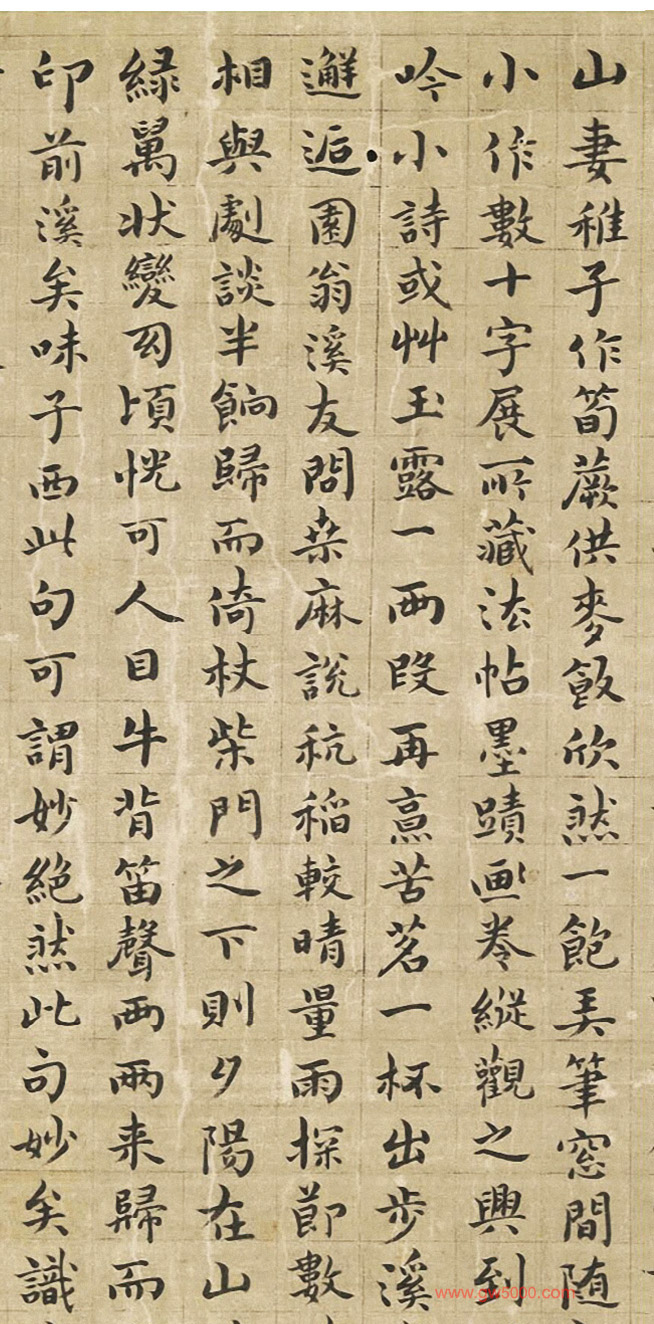 山妻稚子作筍蕨供麥飯欣然一飽弄筆窓間随
小作數十字展所藏法帖墨蹟畫卷縱觀之興到
吟小詩或艸玉露一兩段再烹苦茗一杯出步溪
邂逅園翁溪友問桒麻說秔稻較晴量雨探節數
相與劇談半餉歸而倚杖柴門之下則夕陽在山
緑萬状變幻頃恍可人目牛背笛聲兩兩来歸而
印前溪矣味子西此句可謂妙絕然此句妙矣識
www.gw5000.com